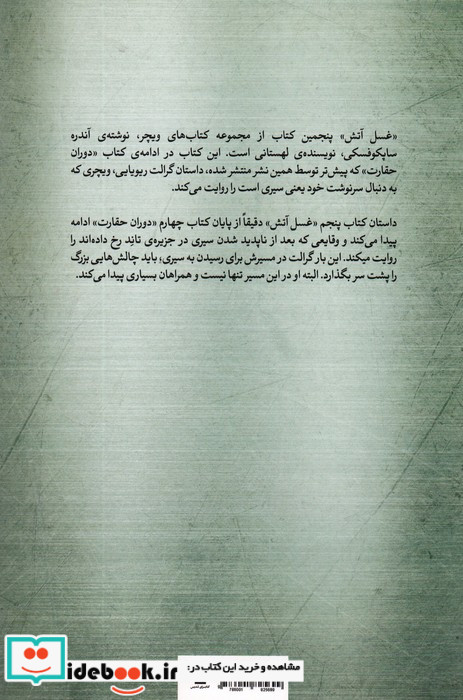 «غسل آتش» پنجمین کتاب از مجموعه کتاب‌های ویچر، نوشته‌ی آندره
ساپکوفسکی، نویسنده‌ی لهستانی است. این کتاب در ادامه‌ی کتاب «دوران
حقارت» که پیش‌تر توسط همین نشر منتشر شده، داستان گرالت ریویایی، ویچری که
به دنبال سرنوشت خود یعنی سیری است را روایت می‌کند.
داستان کتاب پنجم «غسل آتش» دقیقاً از پایان کتاب چهارم «دوران حقارت» ادامه
پیدا می‌کند و وقایعی که بعد از ناپدید شدن سیری در جزیره‌ی تاند رخ داده‌اند را
روایت میکند. این بار گرالت در مسیرش برای رسیدن به سیری، باید چالش‌هایی بزرگ
را پشت سر بگذارد. البته او در این مسیر تنها نیست و همراهان بسیاری پیدا می‌کند.
مشاهده و خرید این کتاب در:
idebook.ir